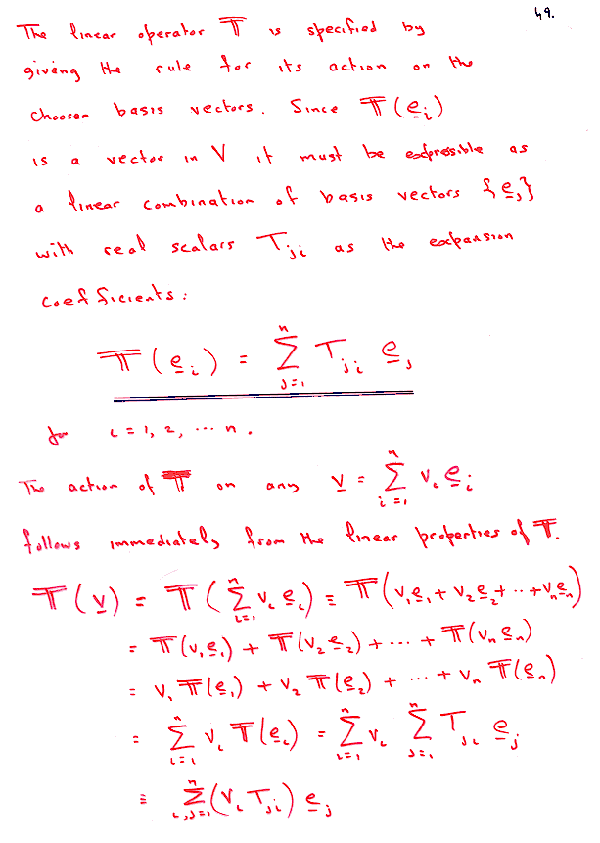 49.
The linear operator 𝕋 is specified by
giving the rule for its action on the
choosen basis vectors. Since 𝕋(e̲ᵢ)
is a vector in V it must be expressible as
a linear combination of basis vectors {e̲ⱼ}
with real scalars Tⱼᵢ as the expansion
coefficients:
𝕋(e̲ᵢ) = Σⁿⱼ₌₁ Tⱼᵢ e̲ⱼ
for i = 1, 2, ... n.
The action of 𝕋 on any v̲ = Σⁿᵢ₌₁ vᵢ e̲ᵢ
follows immediately from the linear properties of 𝕋.
𝕋(v̲) = 𝕋(Σⁿᵢ₌₁ vᵢ e̲ᵢ) ≡ 𝕋(v₁e̲₁ + v₂e̲₂ + ... + vₙe̲ₙ)
= 𝕋(v₁e̲₁) + 𝕋(v₂e̲₂) + ... + 𝕋(vₙe̲ₙ)
= v₁ 𝕋(e̲₁) + v₂ 𝕋(e̲₂) + ... + vₙ 𝕋(e̲ₙ)
= Σⁿᵢ₌₁ vᵢ 𝕋(e̲ᵢ) = Σⁿᵢ₌₁ vᵢ Σⁿⱼ₌₁ Tⱼᵢ e̲ⱼ
≡ Σⁿᵢ,ⱼ₌₁ (vᵢ Tⱼᵢ) e̲ⱼ